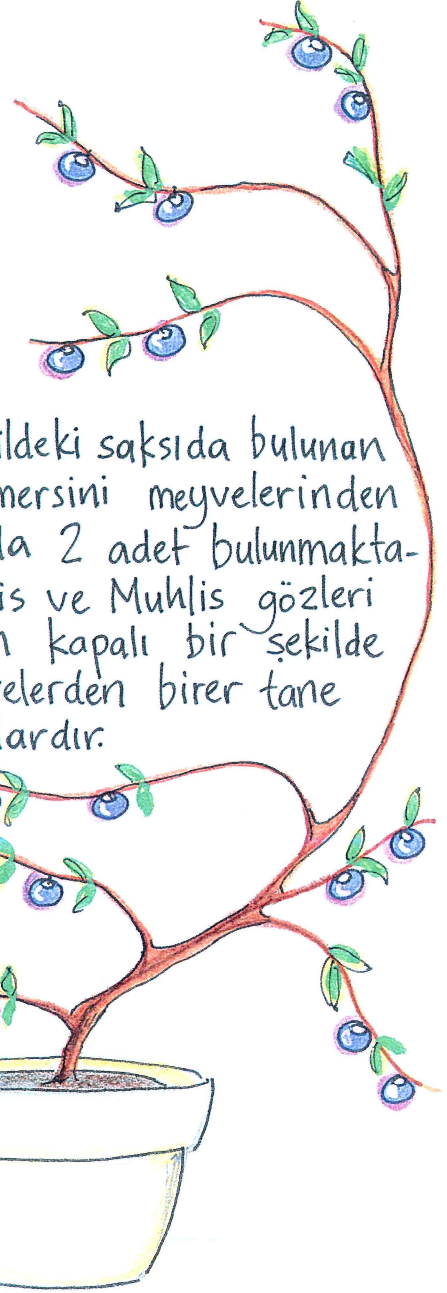 ildeki saksıda bulunan
mersini meyvelerinden
da 2 adet bulunmakta-
is ve Muhlis gözleri
kapalı bir şekilde
elerden birer tane
lardır.